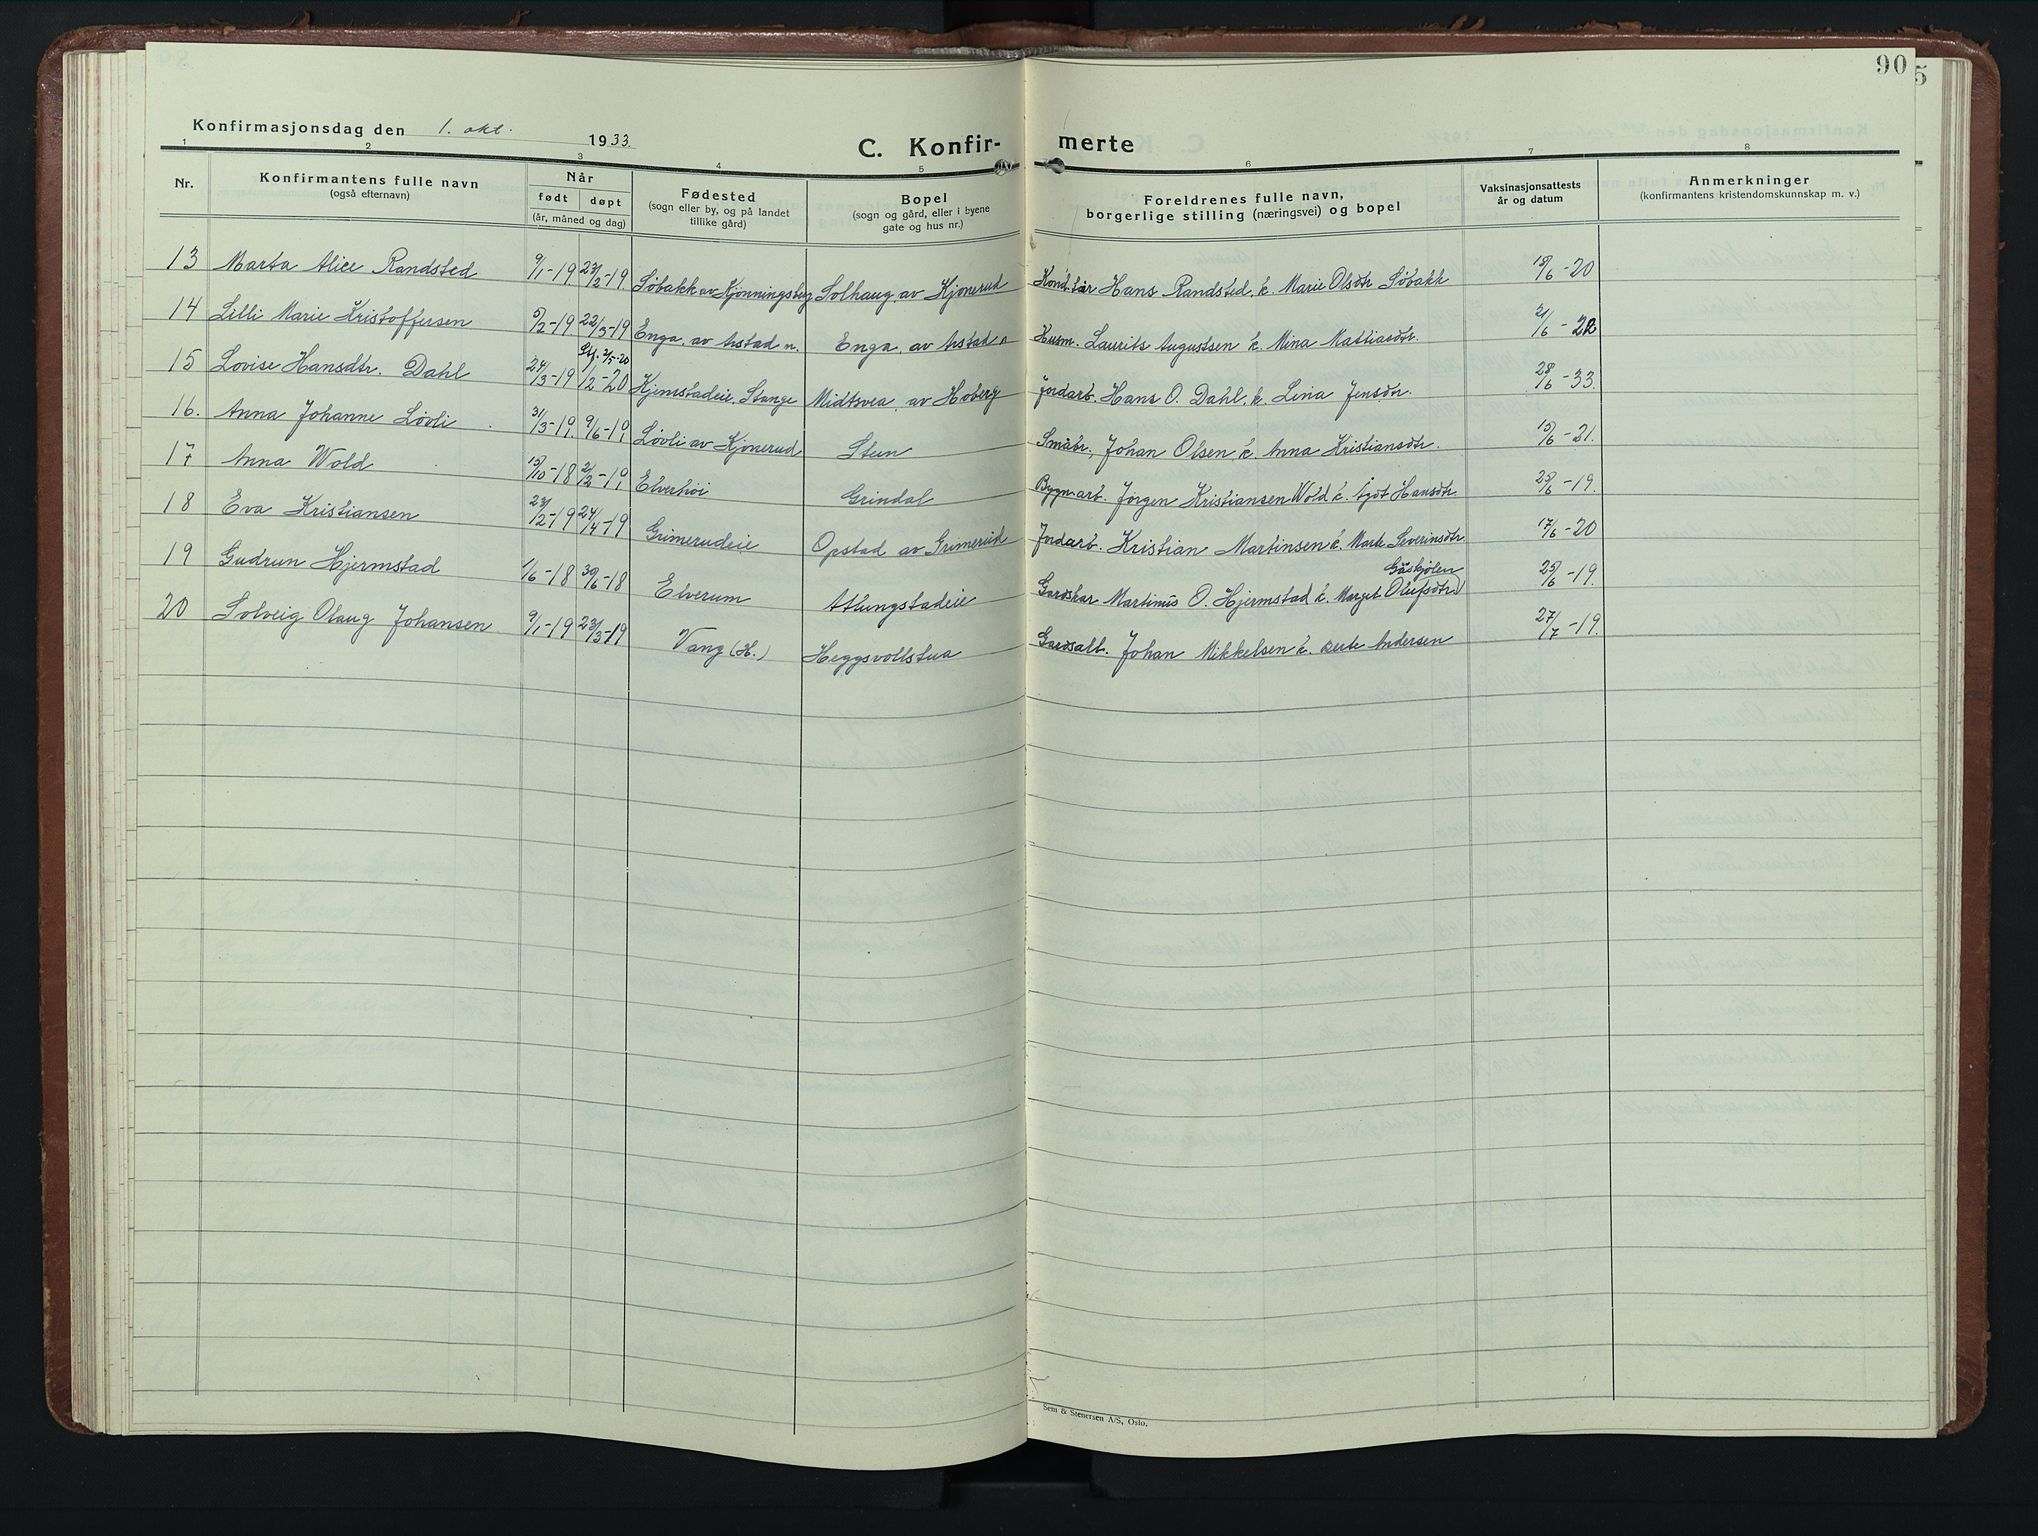 90
5
Konfirmasjonsdag den 1. okt. 1933
C. Konfir-
merte
1 2 3 4 5 6 7 8
Nr.
Konfirmantens fulle navn
(også efternavn)
Når
født døpt
(år, måned og dag)
Fødested
(sogn eller by, og på landet
tillike gård)
Bopel
(sogn og gård, eller i byene
gate og hus nr.)
Foreldrenes fulle navn,
borgerlige stilling (næringsvei) og bopel
Vaksinasjonsattests
år og datum
Anmerkninger
(konfirmantens kristendomskunnskap m. v.)
13 Marta Alice Randsted 9/1-19 23/2-19 Søbakk av Kjonningsberg Solhaug av Kjonerud Hans Randsted. k. Marie Olsdtr Søbakk 15/6-20
14 Lilli Marie Kristoffersen 5/2-19 22/3-19 Enga, av Arstad n. Enga, av Arstad n Husm. Laurits Augustsen k. Mina Mattiasdtr. 21/6-22
Stf. 2/5-20
15 Lovise Hansdtr. Dahl 24/3-19 1/2-20 Kjemstadeie, Stange Midtsvea, av Hoberg Jordarb. Hans O. Dahl, k. Lina Jensdtr. 28/6-33.
16. Anna Johanne Løvli 31/3-19. 9/6-19 Løvli av Kjonerud Steen Småbr., Johan Olsen k. Anna Kristiansdtr. 15/6-21.
17 Anna Wold 15/10-18 2/2-19 Elverhøi Grindal Bygn.arb. Jørgen Kristiansen Wold k. Agot Hansdtr 28/6-19.
18 Eva Kristiansen 23/2-19 24/4-19 Grimerudeie Opstad av Grimerud Jordarb. Kristian Martinsen k. Marte Severinsdtr. 17/6-20
Gåskjølen
19 Gudrun Hjermstad 1/6-18 30/6-18 Elverum Atlungstadeie Gardskar Martinus O. Hjermstad k. Margit Olufsdtr. 25/6-19.
20 Solveig Olaug Johansen 9/1-19 23/3-19 Vang (H.) Heggsvollstua Gardsarb. Johan Mikkelsen k. Berte Andersen 27/7-19.
Sem & Stenersen A/S, Oslo.